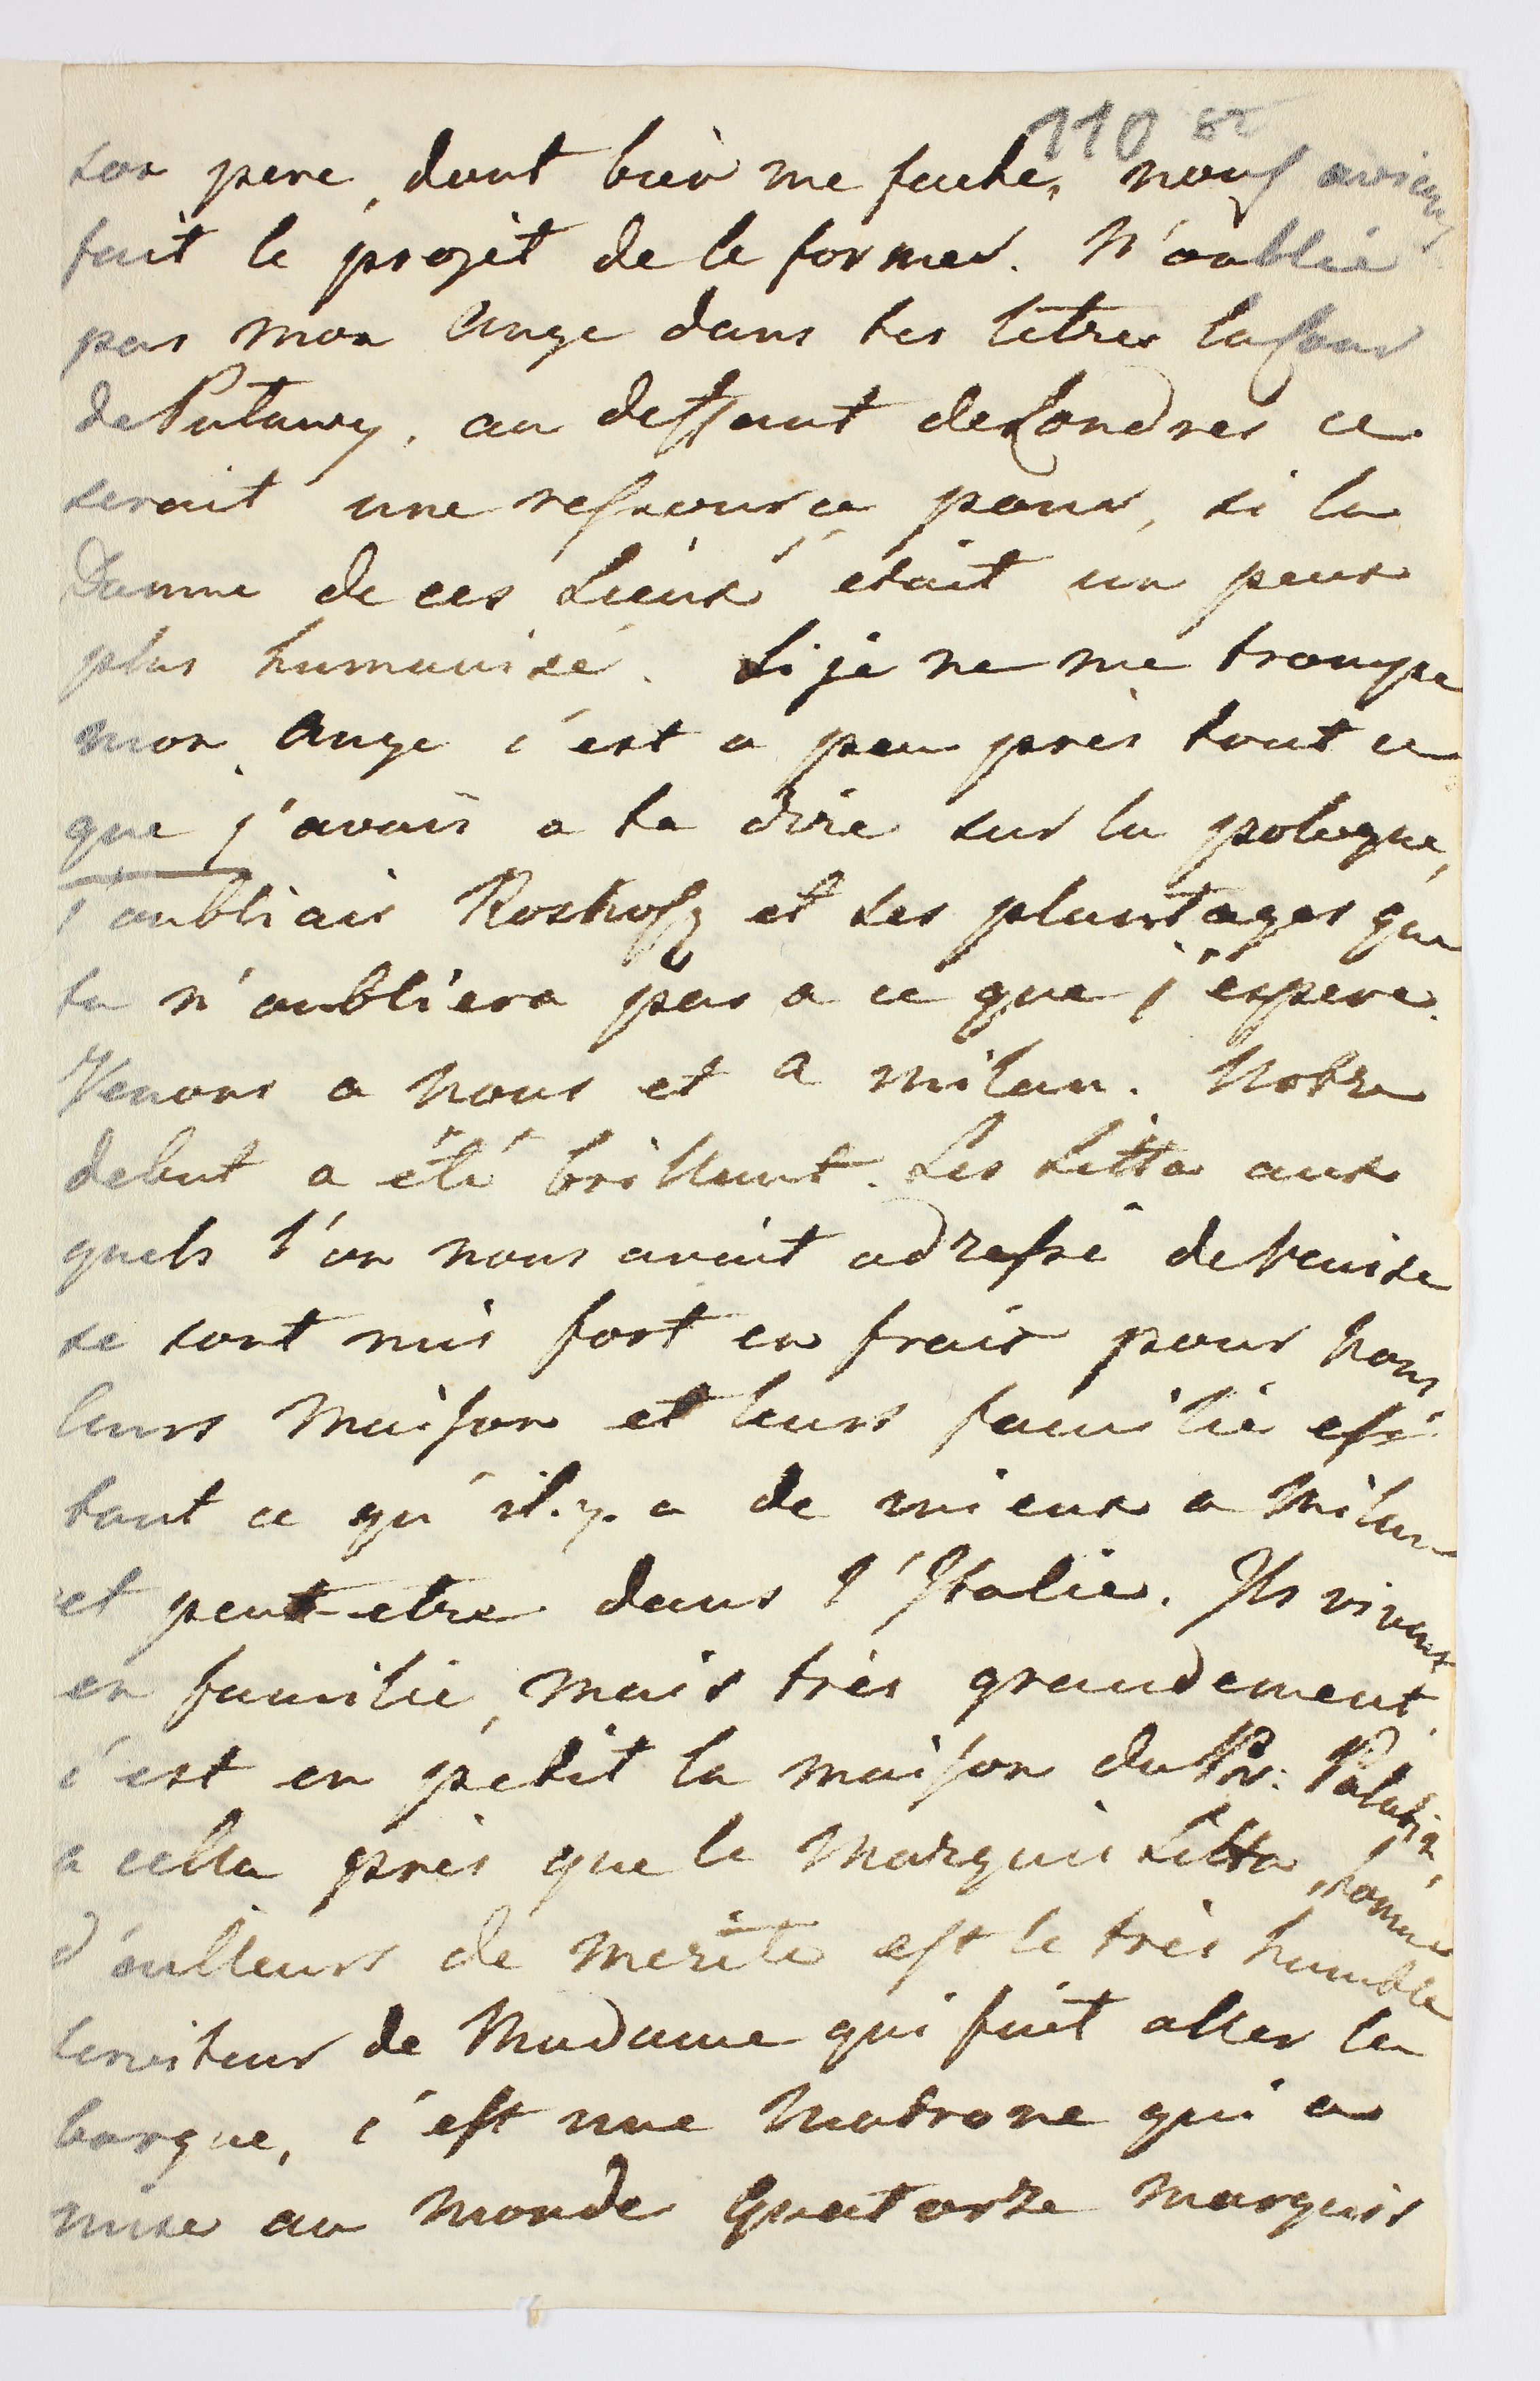 110 82
son pere, dont bien me fache, nous avions
fait le projet de le former. N'oublie
pas mon Ange dans tes letres
de Pulawy, au deffaut de Londres ce
serait une ressource pour, si la
Damme de ces Lieux était un peux
plus humanisé. Si je ne me trompe
mon Ange c'est a peu près tout ce
que j'avais a te dire sur la pologne,
j'oubliais et ses plantages que
tu n'oubliera pas a ce que j'espere.
Venons a nous et a milan. Notre
debut a été brillant. Les Litta aux
quels l'on nous avait adressé de Venise
se sont mis fort en frais pour nous
leurs Maison et leurs familie est
tout ce qu'il.y.a de mieux a Milan
et peut-etre dans l'Italie. Ils vivent
en familie, mais très grandement
c'est en petit la maison du Pr: Palatin,
a cella près que le Marquis Litta, homme
d'ailleurs de merite est le très humble
serviteur de Madame qui fait aller la
barque, c'est une Matrone qui a
mise au monde quatorze marquis